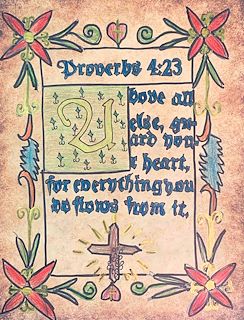 Proverbs 4:23
Above all
else, gu-
ard you-
r heart,
for everything you
do flows from it.